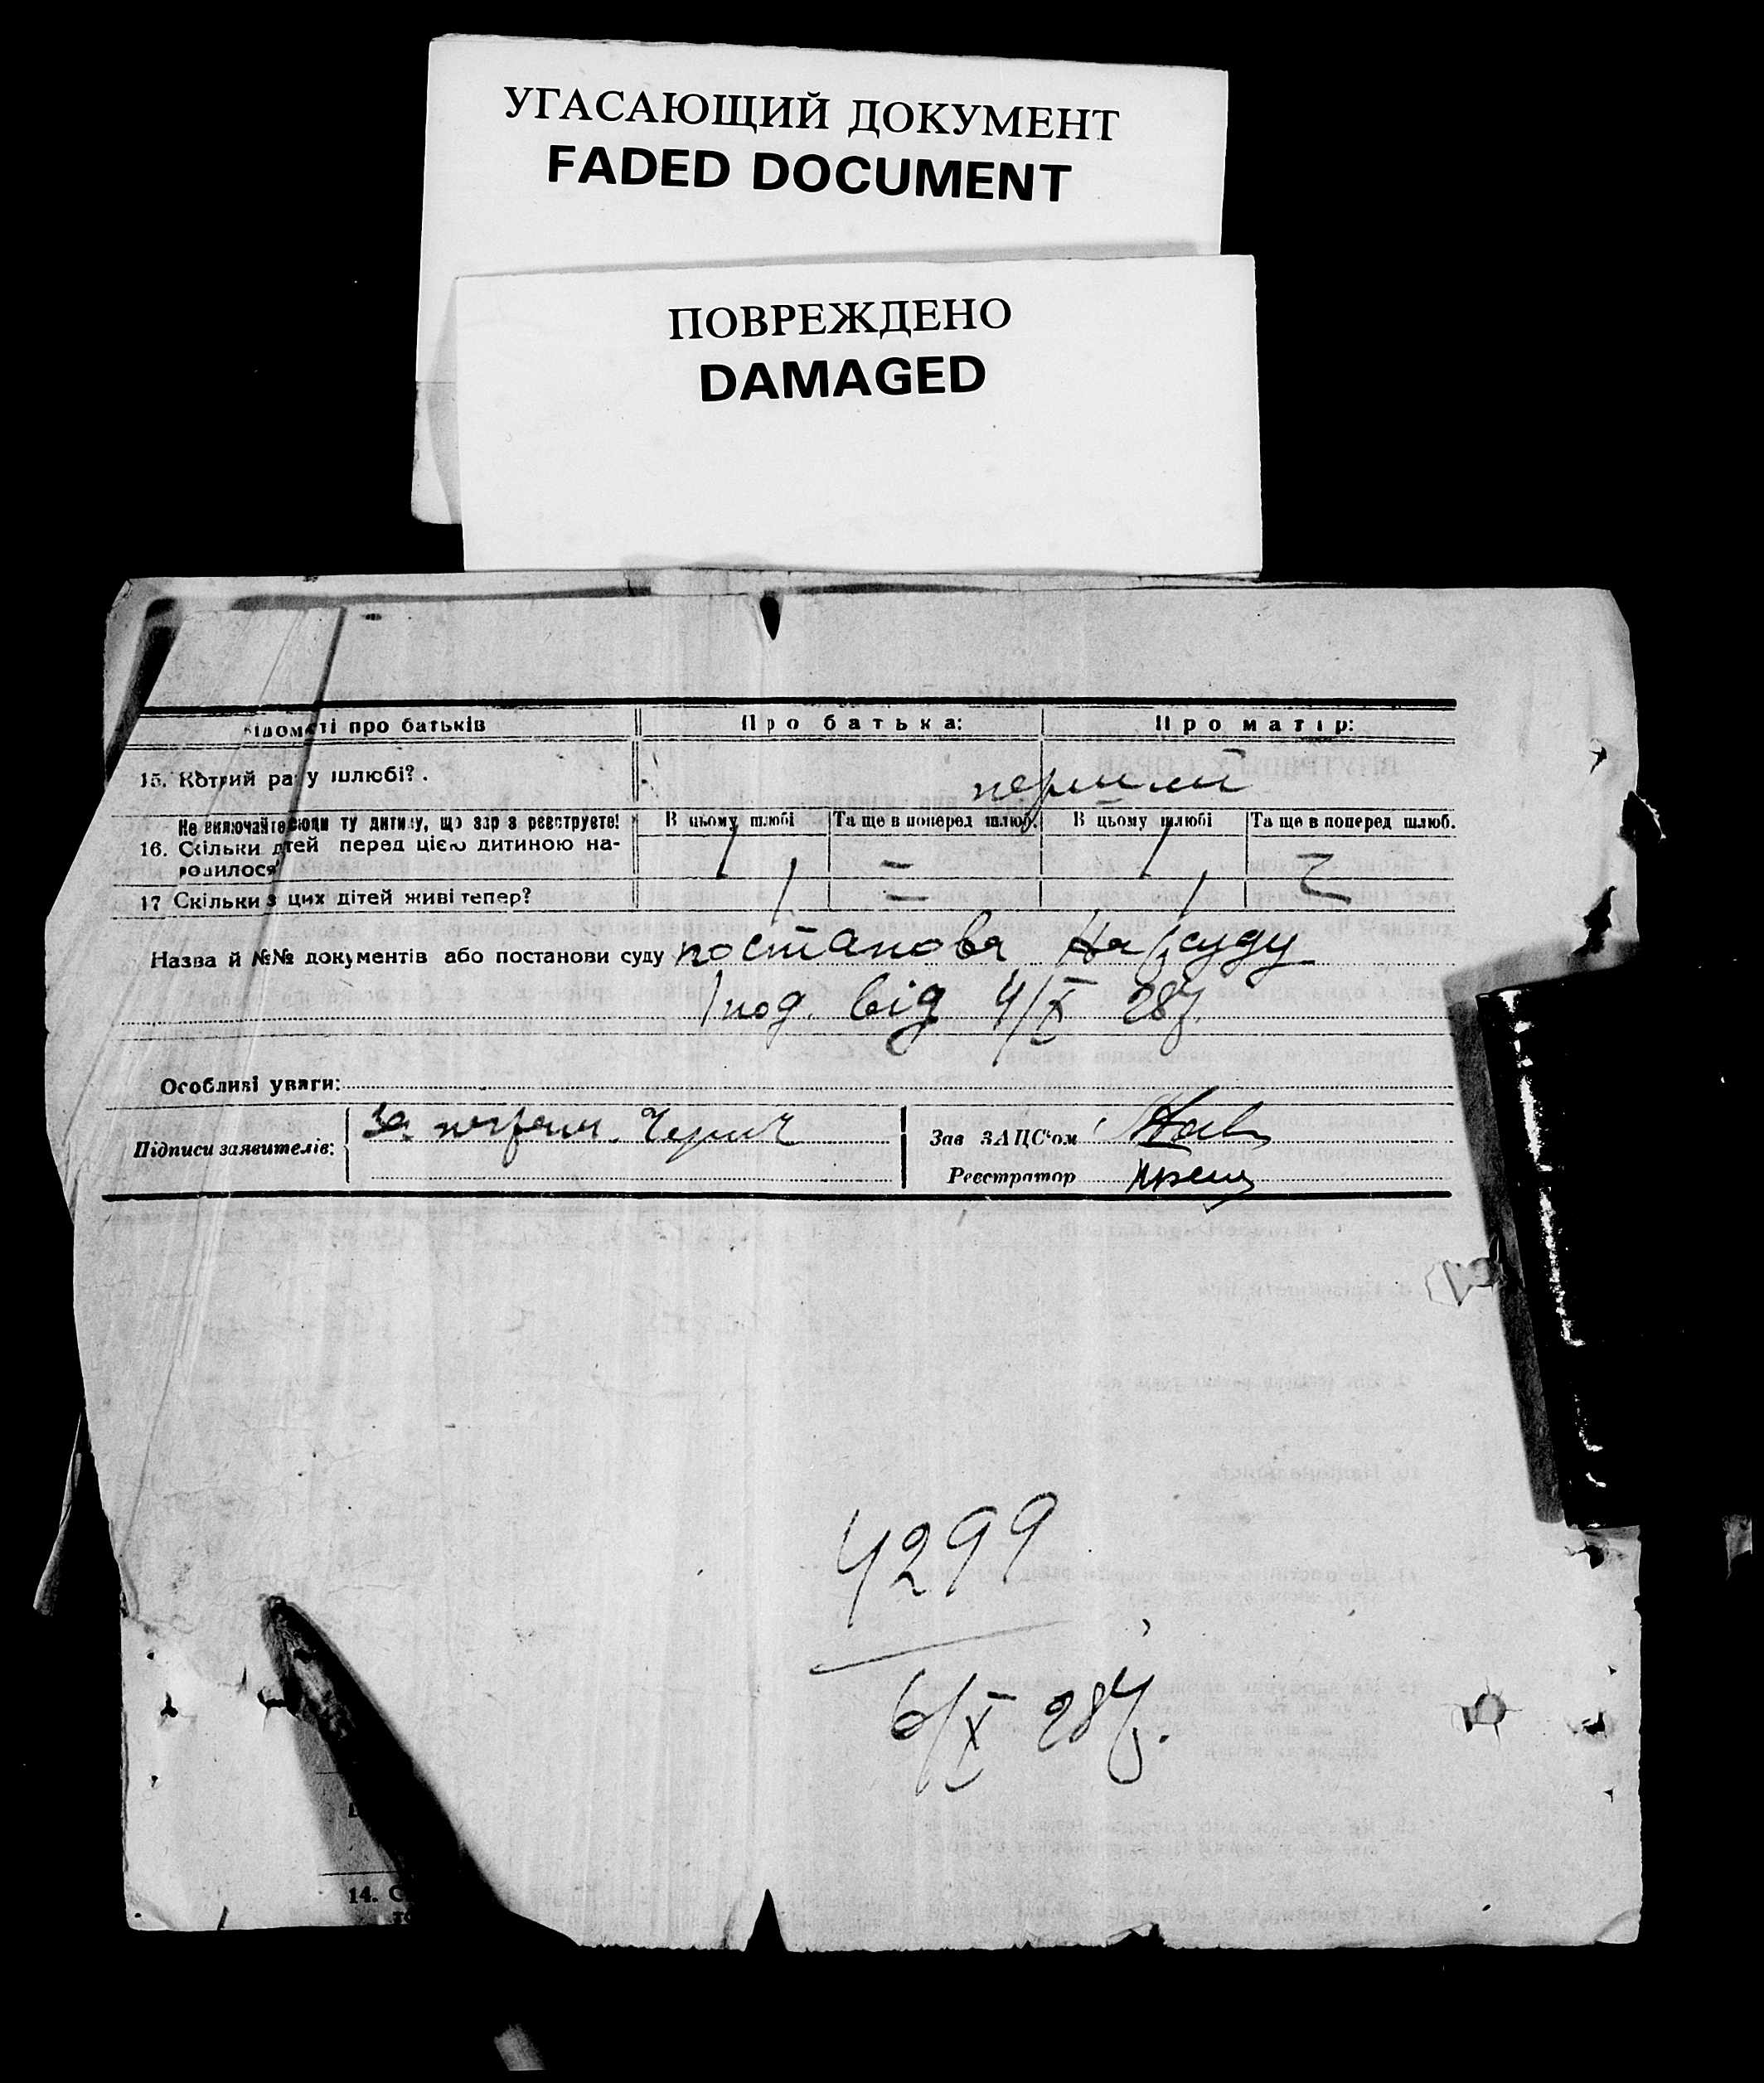 УГАСАЮЩИЙ ДОКУМЕНТ
FADED DOCUMENT
ПОВРЕЖДЕНО
DAMAGED
відомості про батьків Про батька: Про матір:
15. Котрий раз у шлюбі?. перший
Не включайте сюди ту дитину, що зараз реєструєте! В цьому шлюбі Та ще в поперед шлюб. В цьому шлюбі Та ще в поперед шлюб.
16. Скільки дітей перед цією дитиною на-
родилося 1 = 1
17 Скільки з цих дітей живі тепер? 1 = 1
Назва й №№ документів або постанови суду постанова Нарсуду
від 4/X 28р.
Особливі уваги:
Підписи заявителів: За
Зав ЗАЦС'ом
Реєстратор
4299
6/X 28р.
14. С